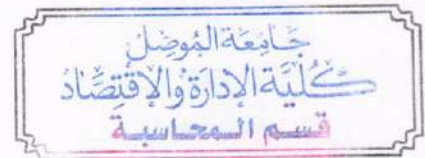 جَامِعَة المُوصِل
كُلِّيَّة الإِدَارَة وَالاِقْتِصَاد
قسم المحاسبة